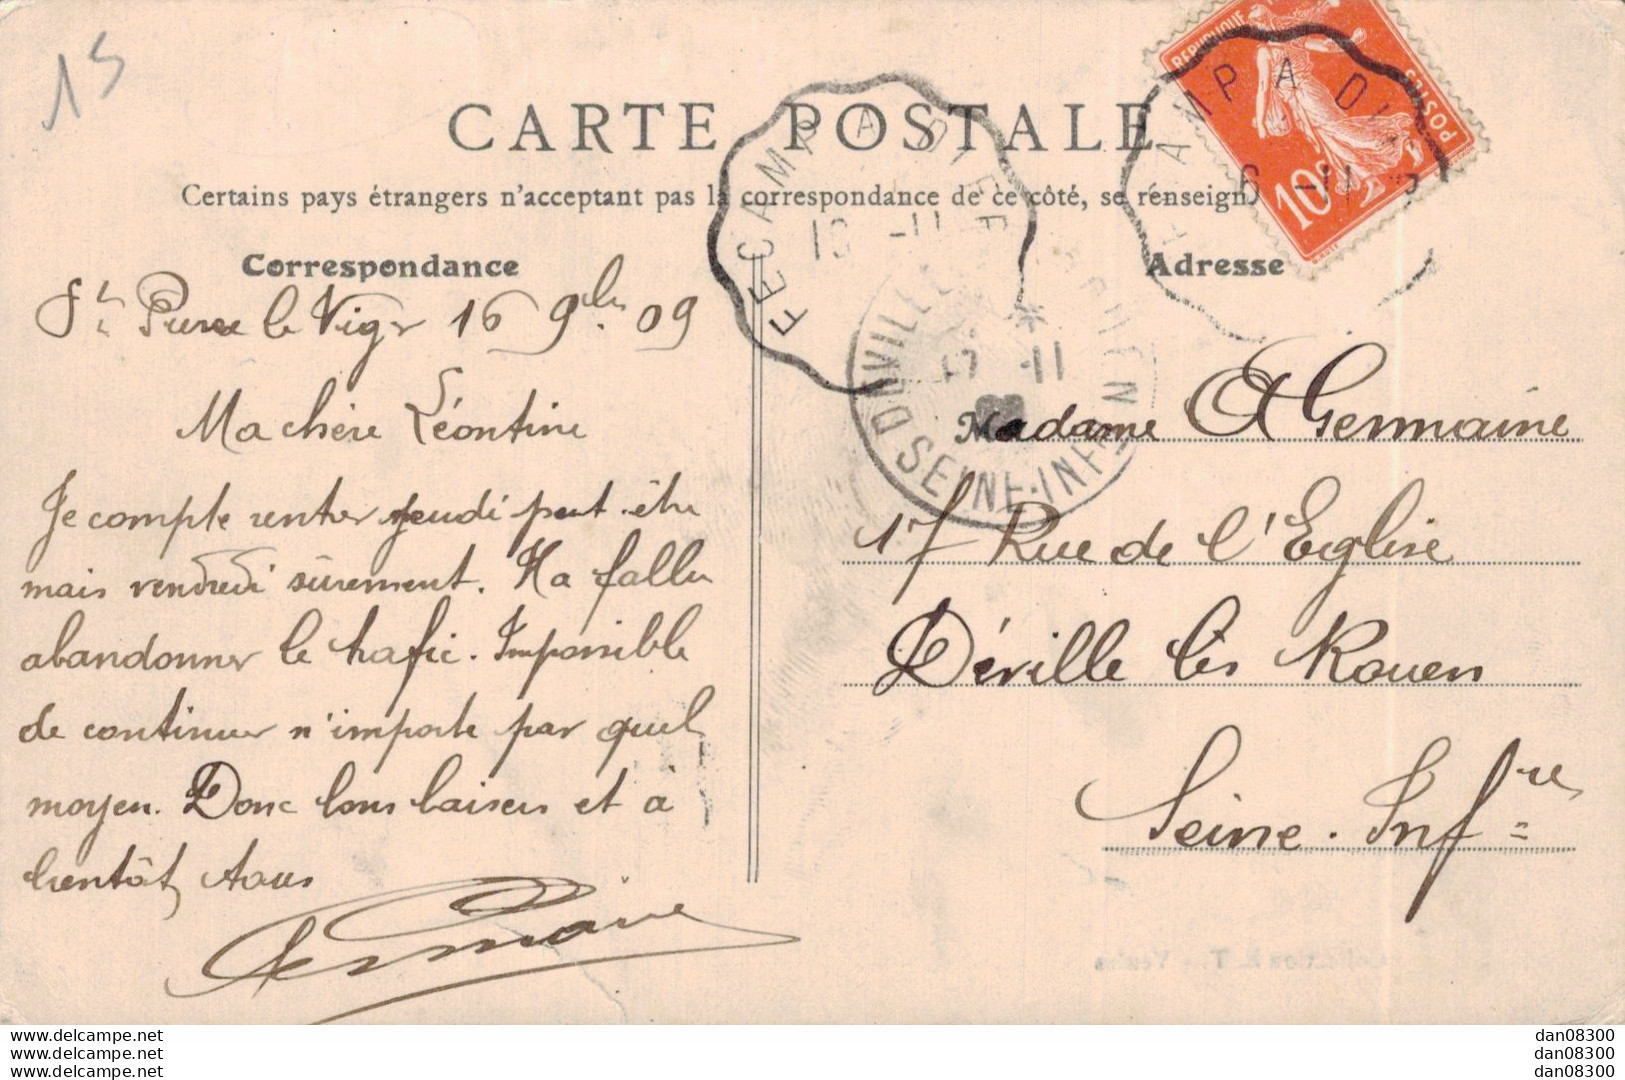 15
CARTE POSTALE
Certains pays étrangers n'acceptent pas la correspondance de ce côté, se renseign
Correspondance
Adresse
REPUBLIQUE
POSTES
10c
FECAMP A DIEP
16 -11
AMP A DI
6 -11
DEVILLE
SEINE-INFRE
17 -11
St Pierre le Viger 16 9bre 09
Ma chère Léontine
Je compte rentrer jeudi peut-être
mais vendredi sûrement. Il a fallu
abandonner le trafic. Impossible
de continuer n'importe par quel
moyen. Donc bons baisers et à
bientôt, tous
Germaine
Madame A Germaine
17 Rue de l'Eglise
Déville lès Rouen
Seine-Infre
dan08300
dan08300
dan08300
www.delcampe.net
www.delcampe.net
www.delcampe.net